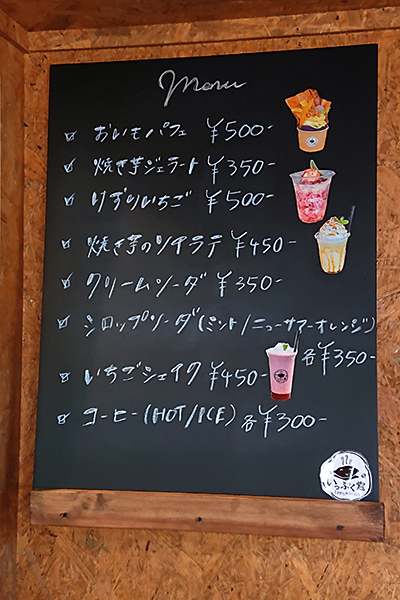 Menu
おいもパフェ ¥500-
焼き芋ジェラート ¥350-
けずりいちご ¥500-
焼き芋のソイラテ ¥450-
クリームソーダ ¥350-
シロップソーダ(ミント/ニューサマーオレンジ)
各¥350-
いちごシェイク ¥450-
コーヒー(HOT/ICE) 各¥300-
いっぷく堂